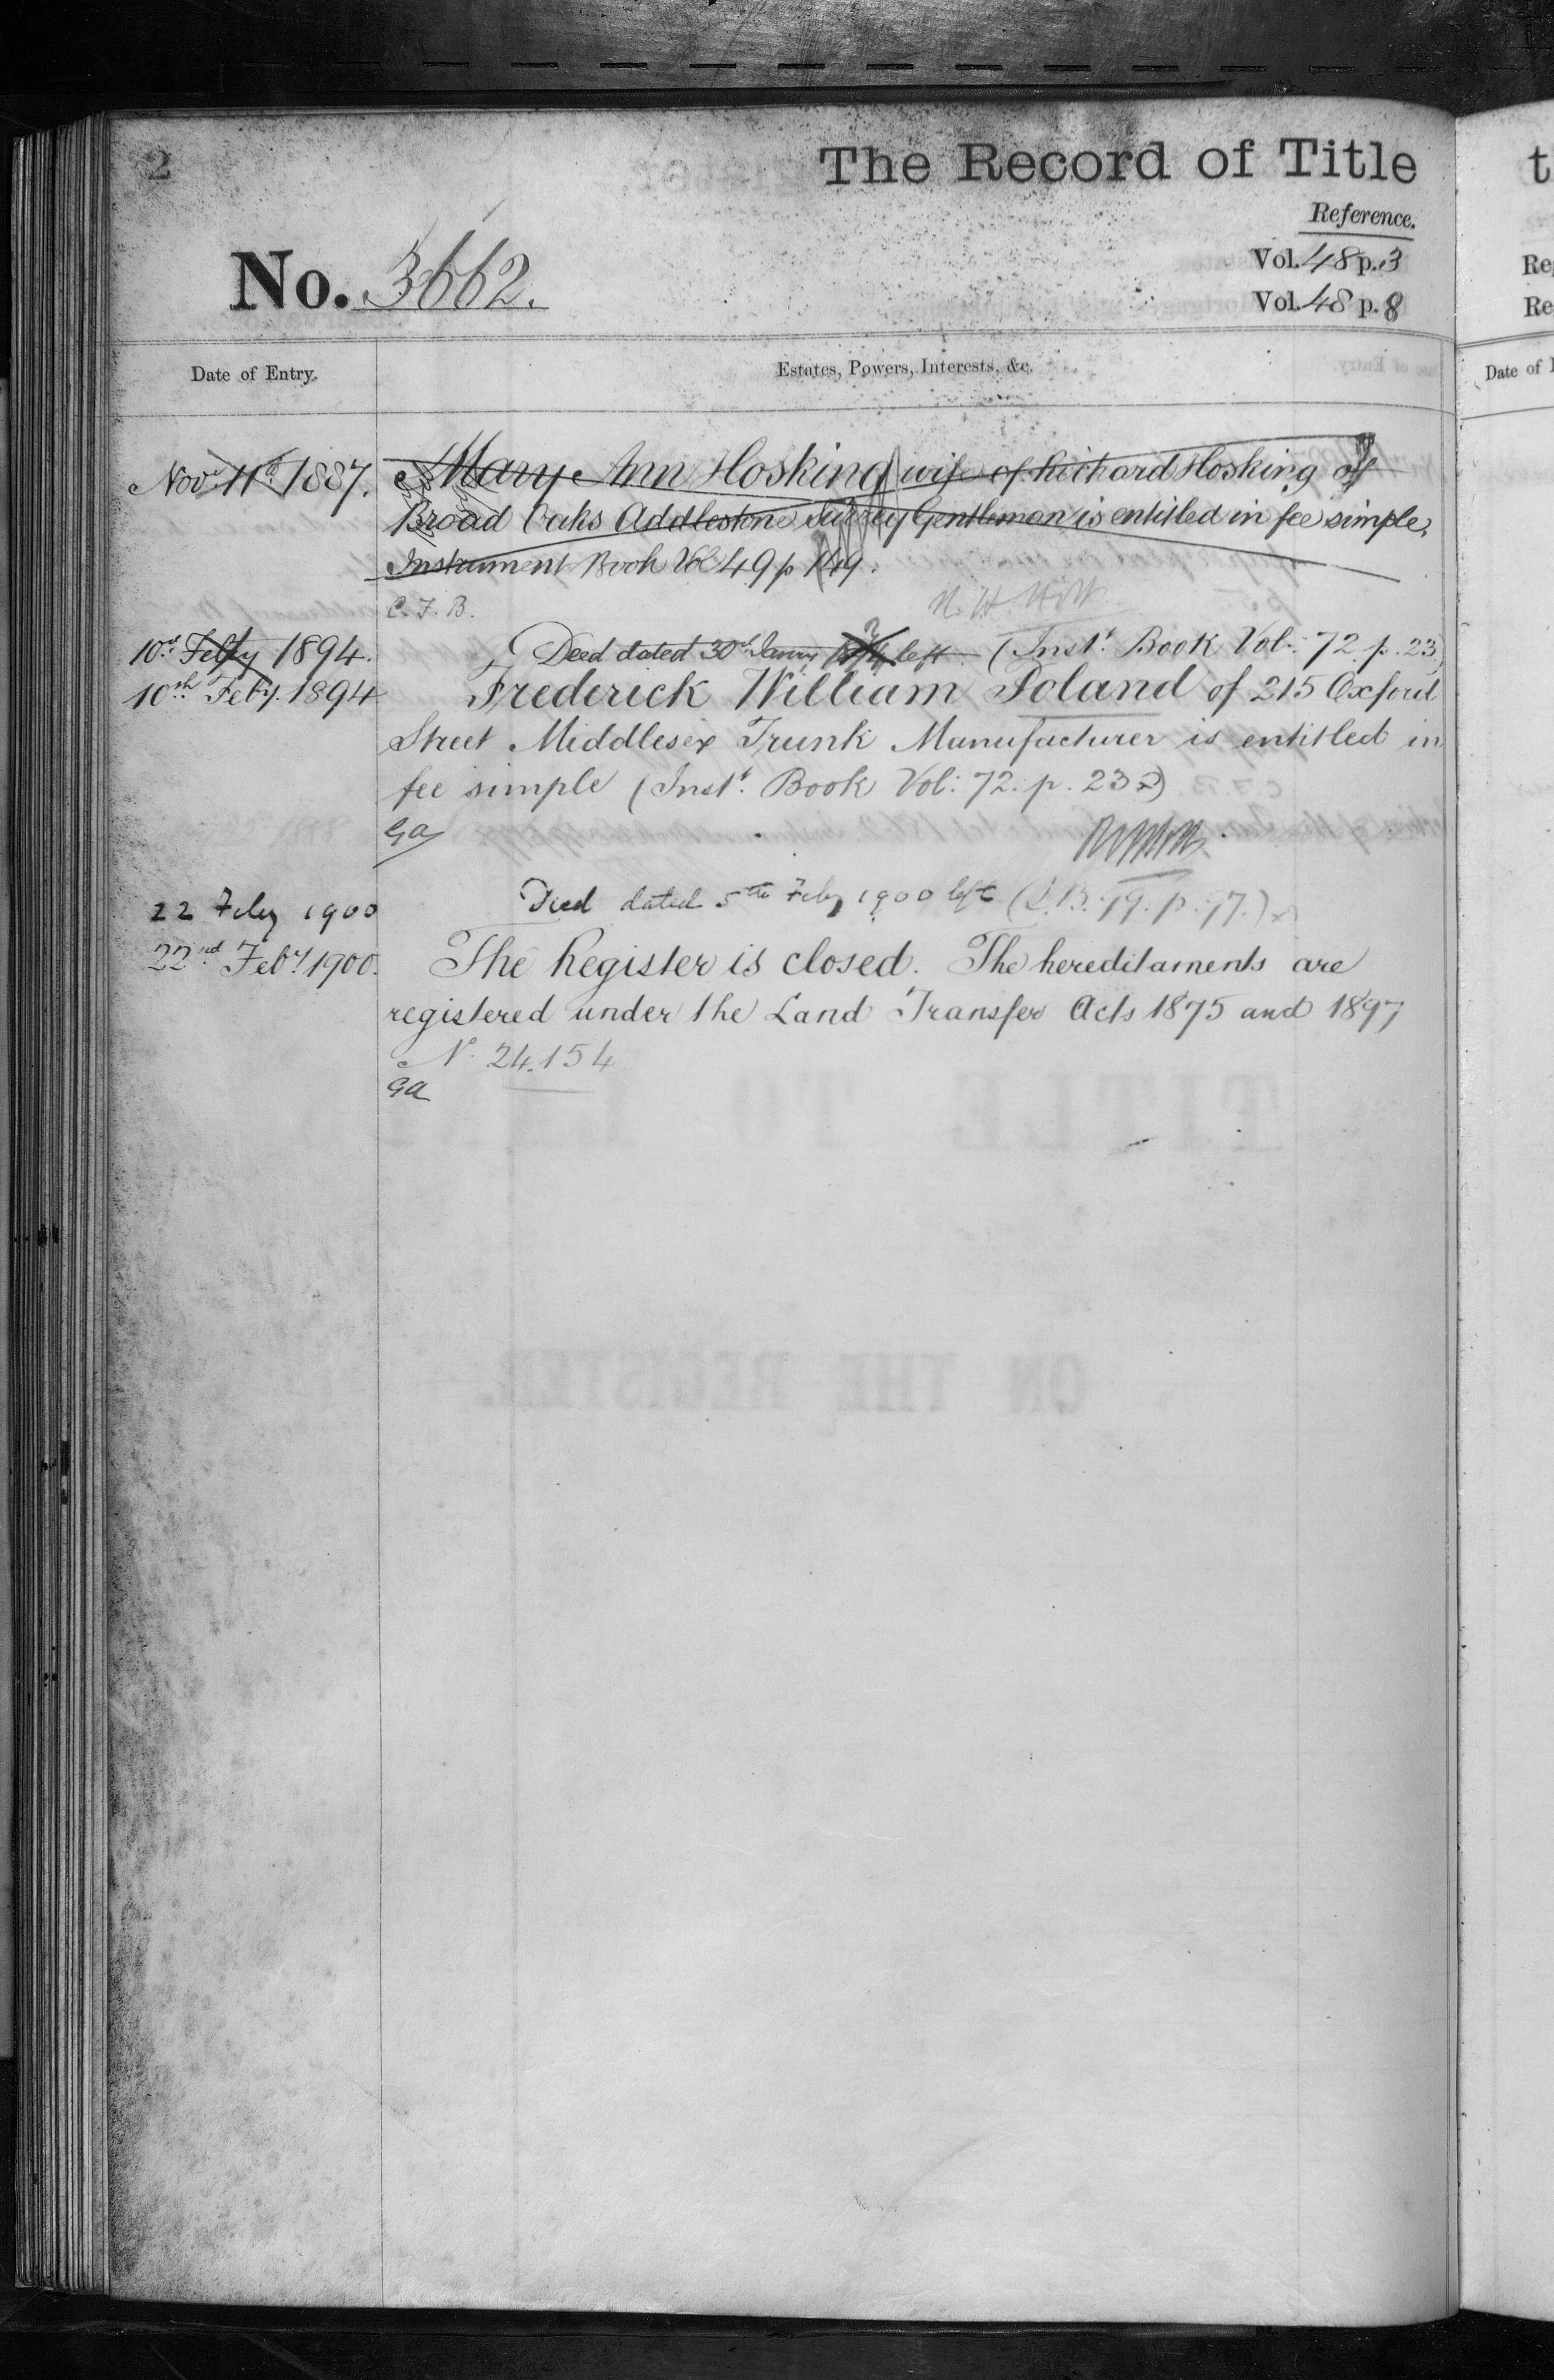 2
The Record of Title
Reference.
No. 3662.
Vol. 48 p. 3
Vol. 48 p. 8
Date of Entry.
Estates, Powers, Interests, &c.
Novr. 11th 1887.
Mary Ann Hosking wife of Richard Hosking of
Broad Oaks Addlestone Surrey Gentleman is entitled in fee simple,
Instrument Book Vol 49 p 149.
C. F. B.
10th Feby 1894.
Deed dated 30th Janry left (Inst. Book Vol: 72 p. 23)
10th Feby. 1894
Frederick William Poland of 215 Oxford
Street Middlesex Trunk Manufacturer is entitled in
fee simple (Inst. Book Vol: 72. p. 23)
Ga
22 Feby 1900
Deed dated 5th Feby 1900 left (I.B. 79. p. 97.)
22nd Feby 1900.
The Register is closed. The hereditaments are
registered under the Land Transfer Acts 1875 and 1897
No. 24.154
Ga
TITLE TO
ON THE REGISTER.
t
Re
Re
Date of